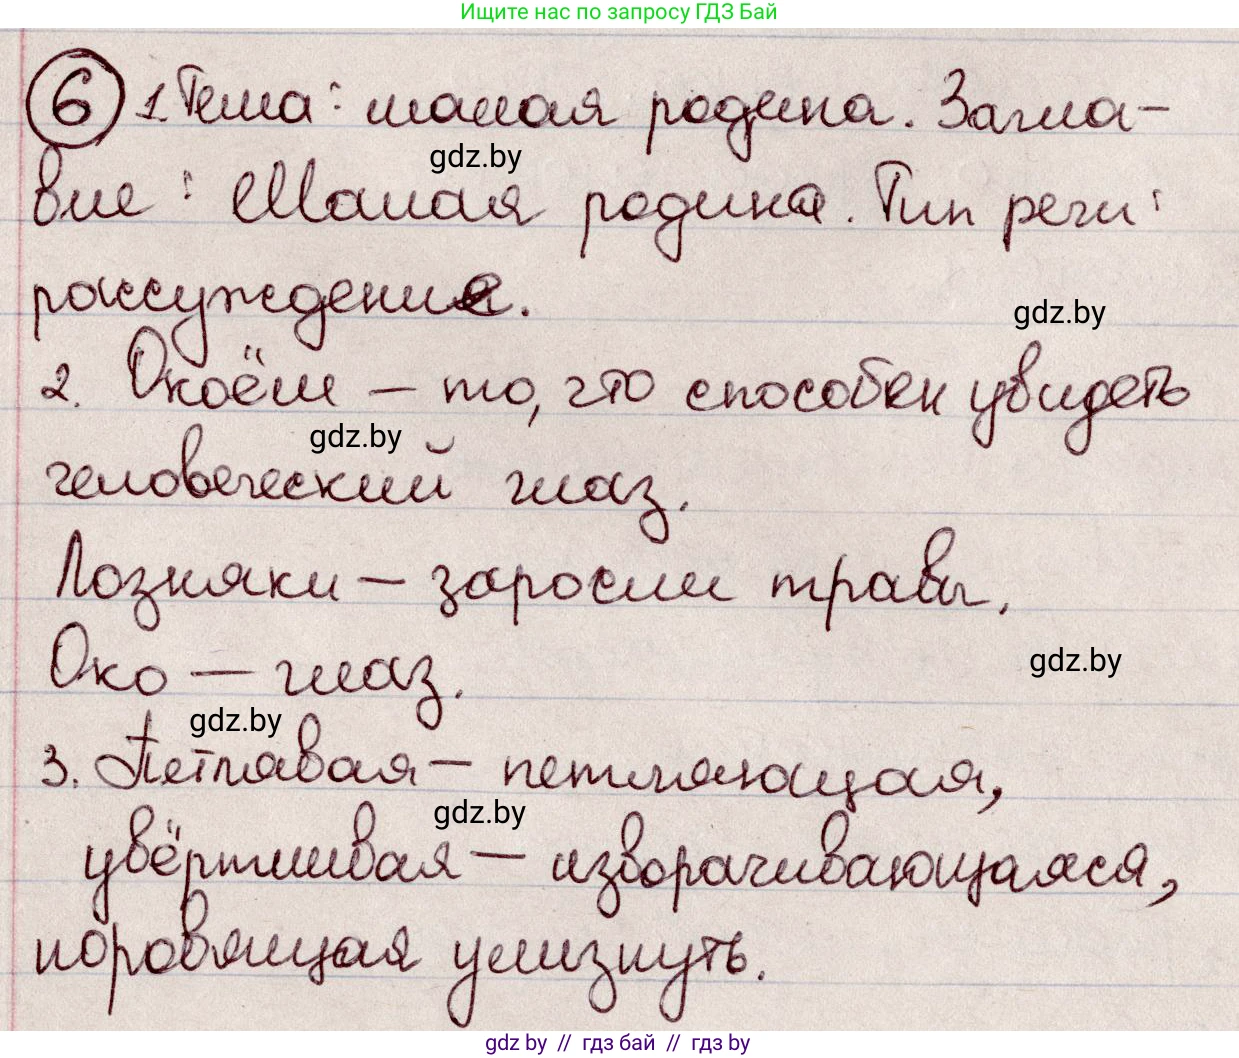 Ищите нас по запросу ГДЗ Бай
6 1. Тема: малая родина. Загла-
gdz.by
вие: Малая родина. Тип речи:
рассуждение.
gdz.by
2. Окоём – то, что способен увидеть
gdz.by
человеческий глаз.
Лозняки – заросли травы.
Око – глаз.
gdz.by
gdz.by
3. Петлявая – петляющая,
gdz.by
увёртливая – изворачивающаяся,
норовящая улизнуть.
gdz.by // гдз бай // гдз by